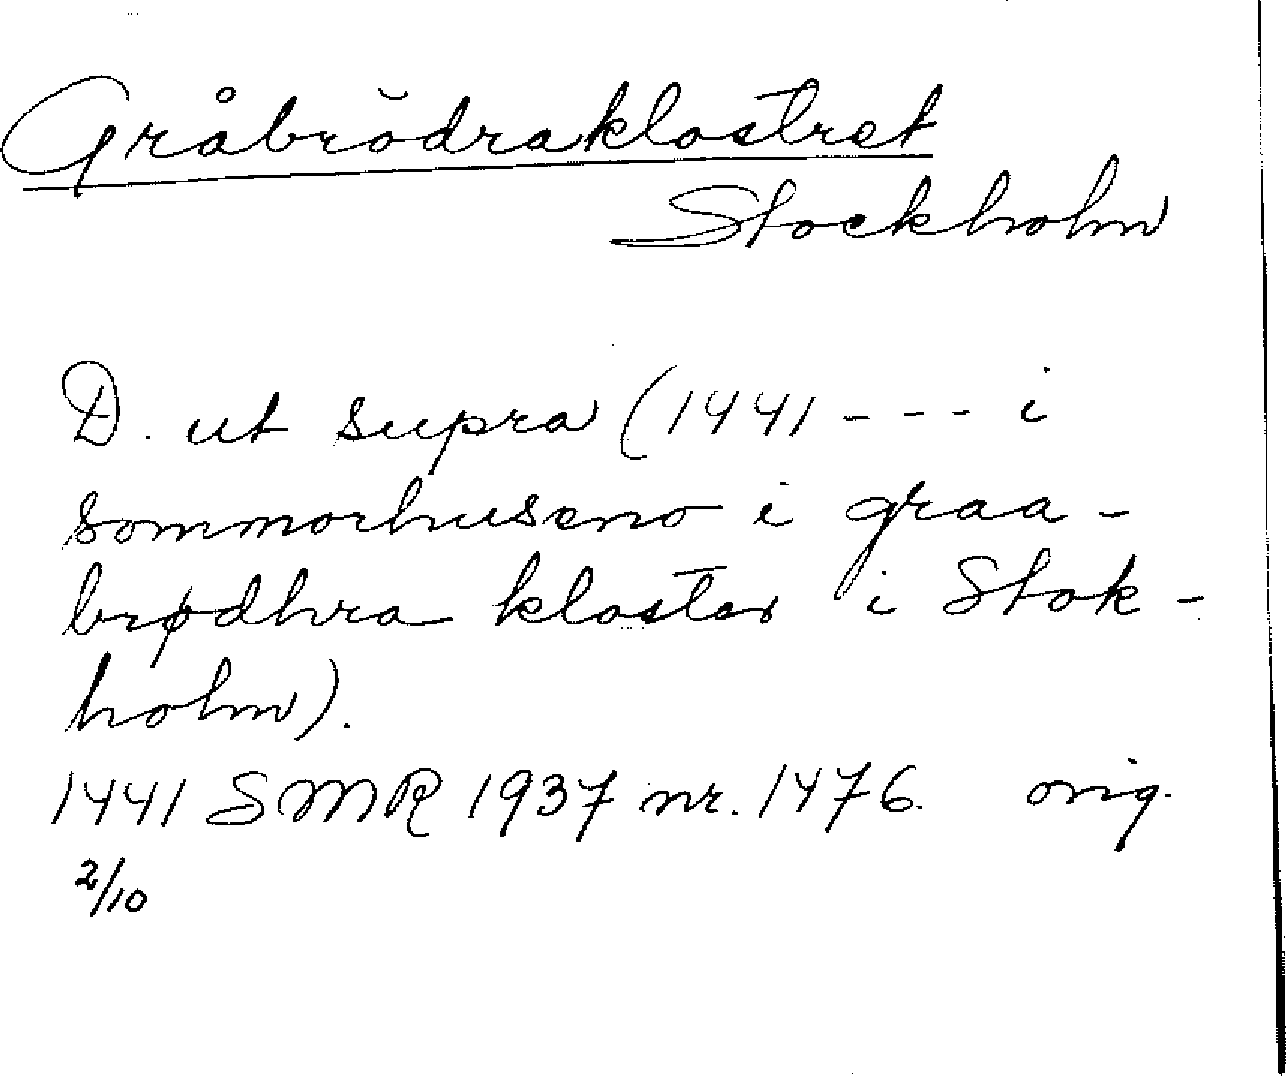 Gråbrödraklostret
Stockholm
D. ut supra (1441 - - - i
sommorhuseno i graa-
brødhra kloster i Stok-
holm).
1441 SMR 1937 nr. 1476. orig.
2/10